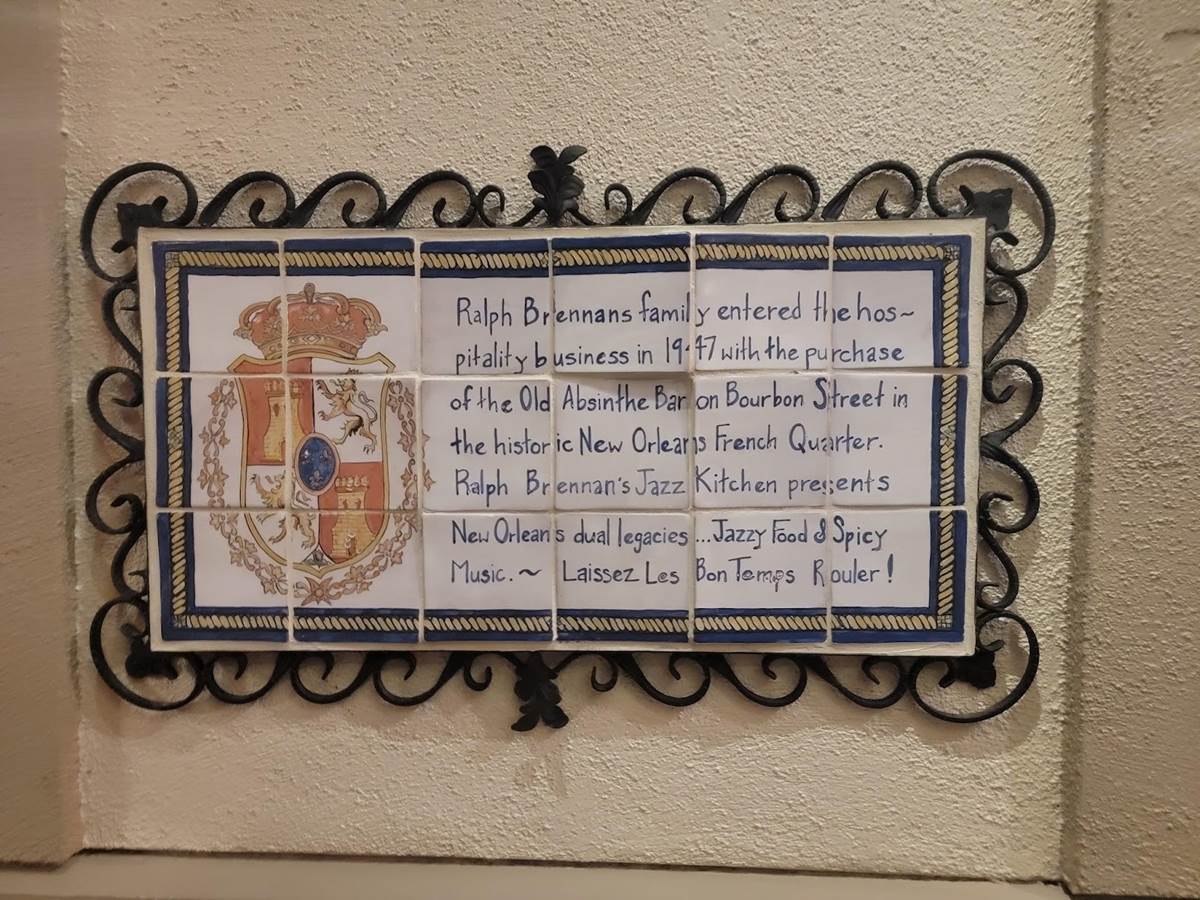 Ralph Brennans family entered the hos~
pitality business in 1947 with the purchase
of the Old Absinthe Bar on Bourbon Street in
the historic New Orleans French Quarter.
Ralph Brennan's Jazz Kitchen presents
New Orleans dual legacies ...Jazzy Food & Spicy
Music. ~ Laissez Les Bon Temps Rouler!